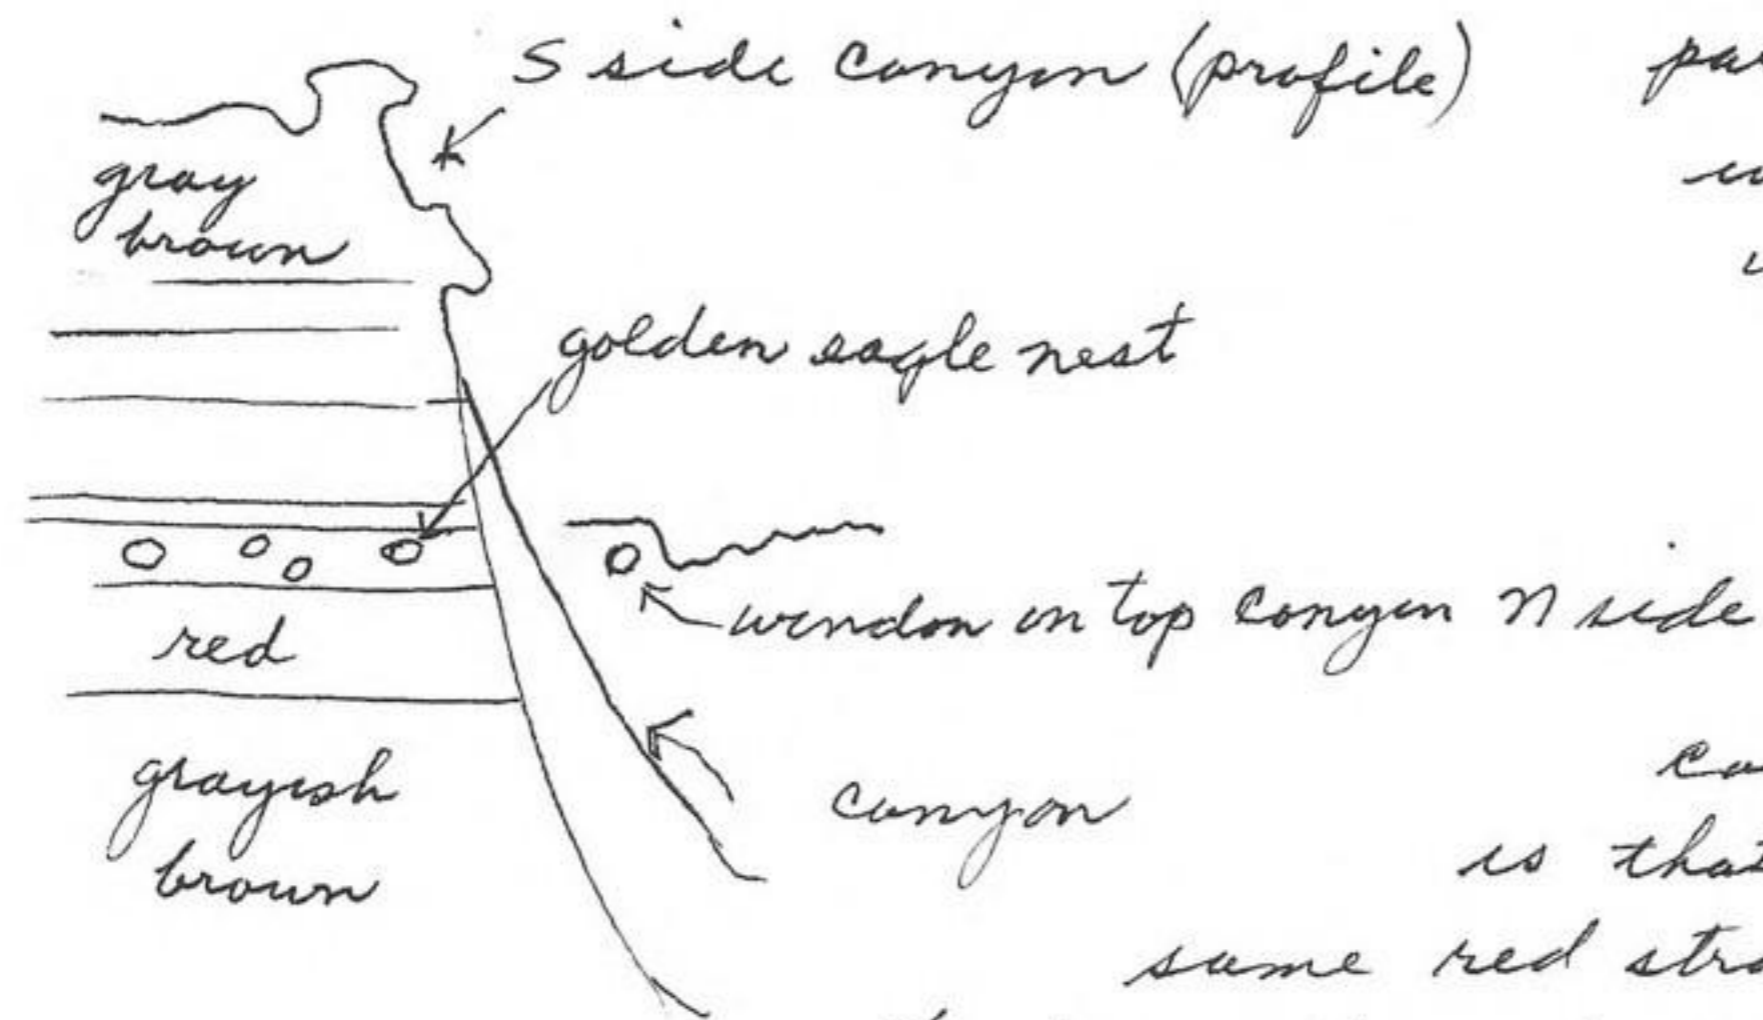 S side canyon (profile)
gray
brown
golden eagle nest
window on top canyon N side
red
grayish
brown
canyon
is that
same red